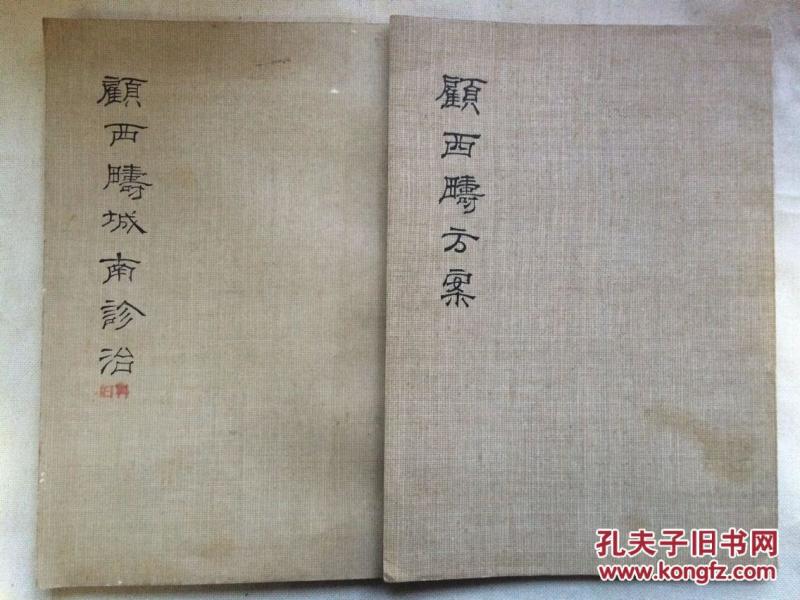 顧西疇城南診治
顧西疇方案
孔夫子旧书网
www.kongfz.com